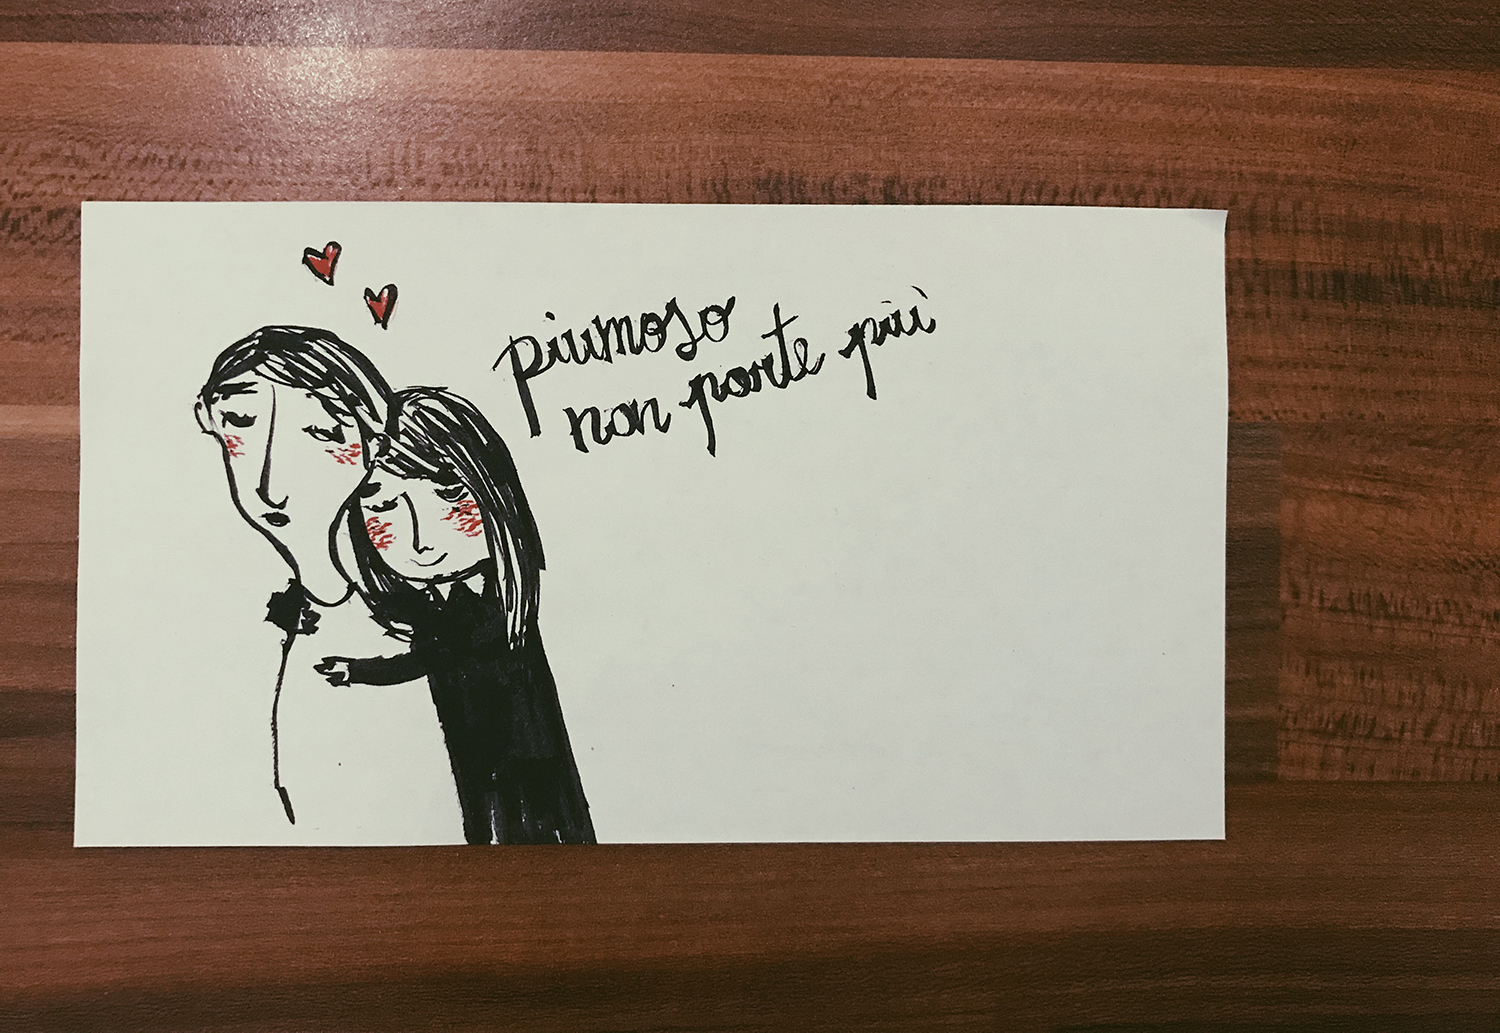 piumoso
non parte più